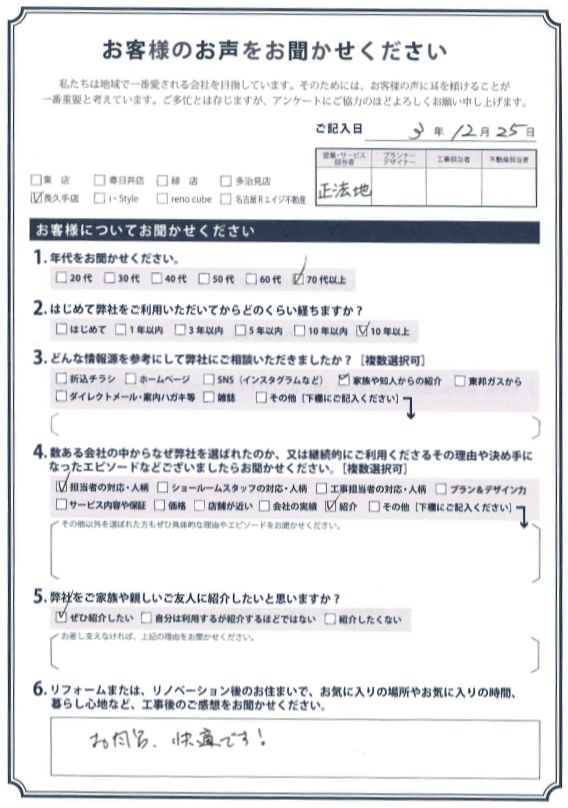 お客様のお声をお聞かせください
私たちは地域で一番愛される会社を目指しています。そのためには、お客様の声に耳を傾けることが
一番重要と考えています。ご多忙とは存じますが、アンケートにご協力のほどよろしくお願い申し上げます。
ご記入日 3年12月25日
営業・サービス担当者 プランナーデザイナー 工事担当者 不動産担当者
正法地
□東 店 □春日井店 □緑 店 □多治見店
☑長久手店 □i・Style □reno cube □名古屋Rエイジ不動産
お客様についてお聞かせください
1. 年代をお聞かせください。
□20代 □30代 □40代 □50代 □60代 ☑70代以上
2. はじめて弊社をご利用いただいてからどのくらい経ちますか?
□はじめて □1年以内 □3年以内 □5年以内 □10年以内 ☑10年以上
3. どんな情報源を参考にして弊社にご相談いただきましたか?[複数選択可]
□折込チラシ □ホームページ □SNS(インスタグラムなど) ☑家族や知人からの紹介 □東邦ガスから
□ダイレクトメール・案内ハガキ等 □雑誌 □その他[下欄にご記入ください]
4. 数ある会社の中からなぜ弊社を選ばれたのか、又は継続的にご利用くださるその理由や決め手に
なったエピソードなどございましたらお聞かせください。[複数選択可]
☑担当者の対応・人柄 □ショールームスタッフの対応・人柄 □工事担当者の対応・人柄 □プラン&デザイン力
□サービス内容や保証 □価格 □店舗が近い □会社の実績 ☑紹介 □その他[下欄にご記入ください]
その他以外を選ばれた方もぜひ具体的な理由やエピソードをお聞かせください。
5. 弊社をご家族や親しいご友人に紹介したいと思いますか?
☑ぜひ紹介したい □自分は利用するが紹介するほどではない □紹介したくない
お差し支えなければ、上記の理由をお聞かせください。
6. リフォームまたは、リノベーション後のお住まいで、お気に入りの場所やお気に入りの時間、
暮らし心地など、工事後のご感想をお聞かせください。
お風呂、快適です!